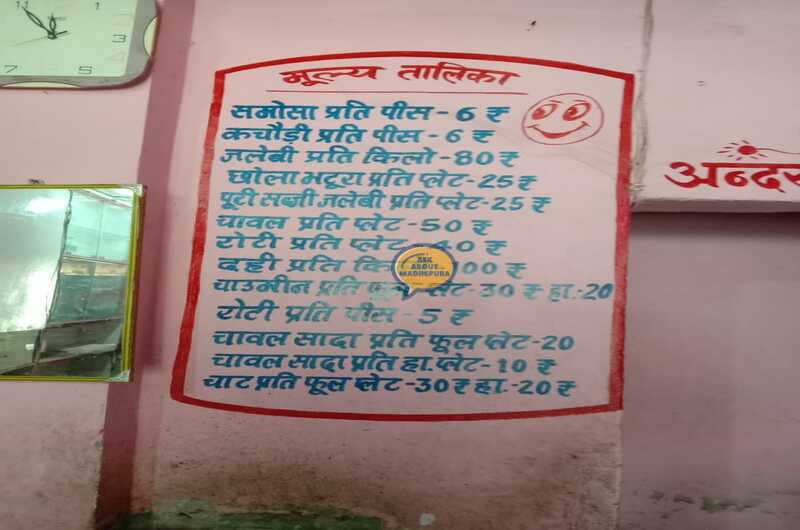 11 1
3
7 5
मूल्य तालिका
समोसा प्रति पीस - 6 ₹
कचौड़ी प्रति पीस - 6 ₹
जलेबी प्रति किलो - 80 ₹
छोला भटूरा प्रति प्लेट - 25 ₹
पूरी सब्जी जलेबी प्रति प्लेट - 25 ₹
चावल प्रति प्लेट - 50 ₹
रोटी प्रति प्लेट 40 ₹
दही प्रति 00 ₹
चाउमीन प्रति फुल प्लेट - 30 ₹ हा.-20
रोटी प्रति पीस - 5 ₹
चावल सादा प्रति फूल प्लेट - 20
चावल सादा प्रति हा. प्लेट - 10 ₹
चाट प्रति फूल प्लेट - 30 ₹ हा.-20 ₹
ASK
ABOUT
MADHEPURA
अन्दर